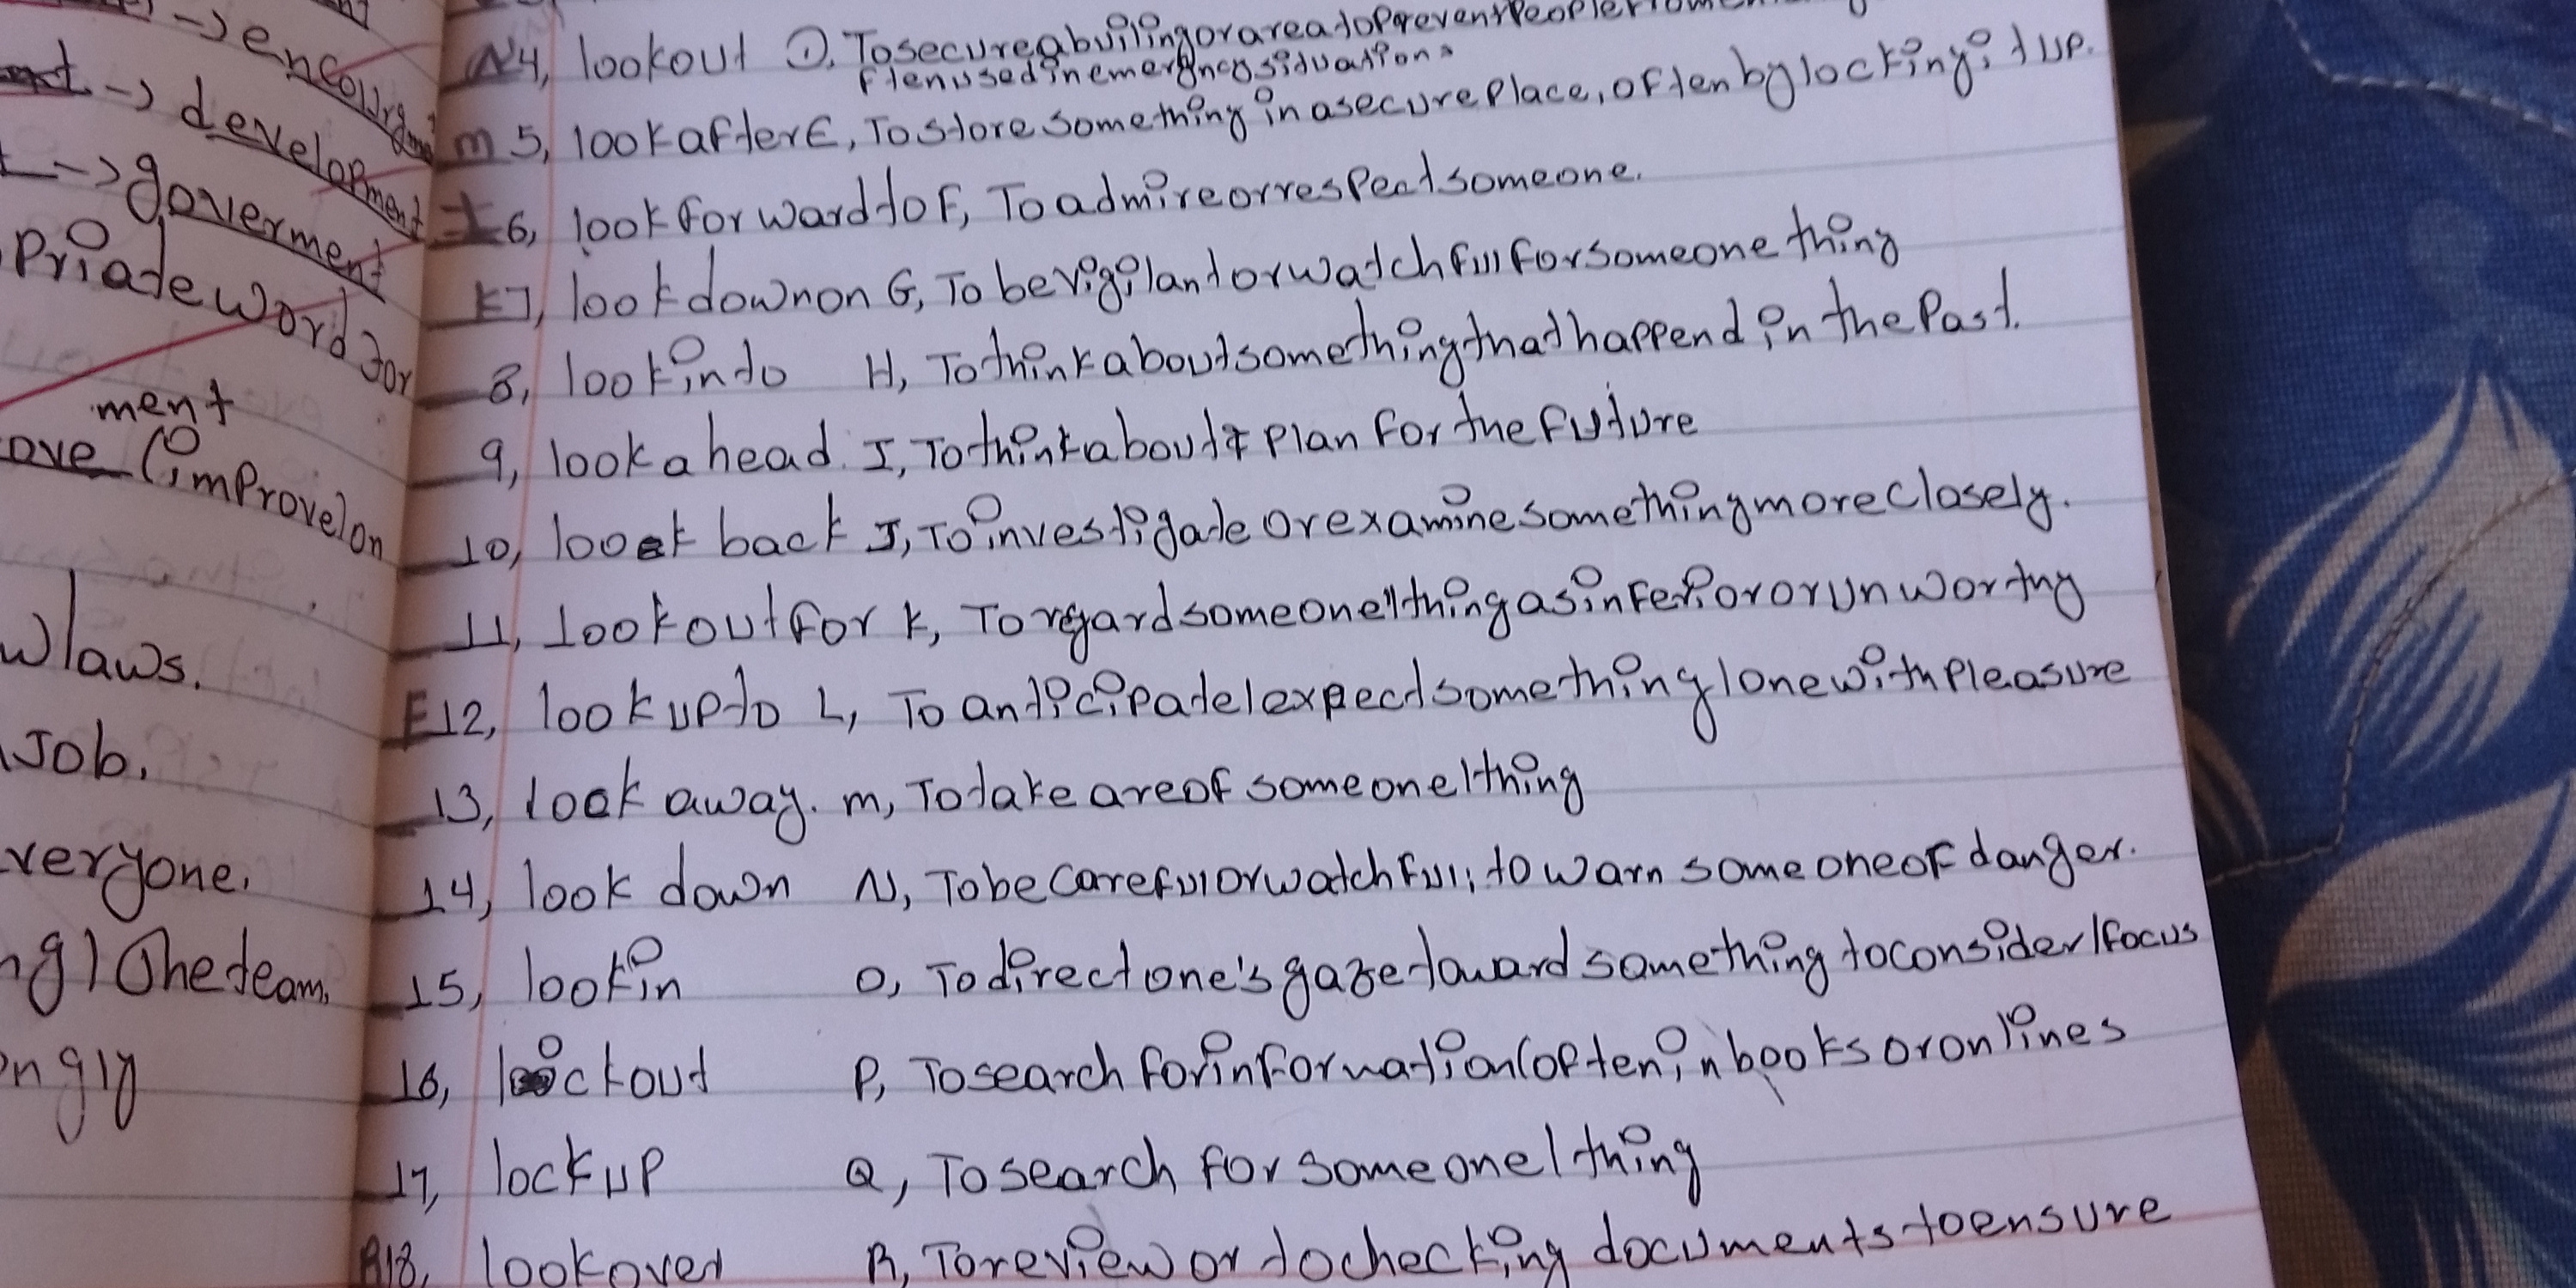 -> encourgment
-> development
-> goverment
Priate word for
ment
ove (improvelon
w laws.
Job.
veryone.
ng) The team.
ngly
N 4, look out D, To secure a builing or area to prevent people from
ften used in emergncy siduations
m 5, look after E, To store something in a secure place, often by locking it up.
6, look forward to F, To admire or respect someone.
K 7, look down on G, To be vigilant or watchfull for someone thing
8, look into H, To think about something that happend in the past.
9, look ahead. I, To think about & plan for the future
10, look back J, To investigate or examine something more closely.
11, Look out for K, To regard someone/thing as inferior or unworthy
F 12, look up to L, To anticipate/expect something/one with pleasure
13, look away. m, To take are of someone/thing
14, look down N, To be careful or watchfull; to warn someone of danger.
15, look in O, To direct one's gaze toward something to consider/focus
16, lockout P, To search for information (often in books or onlines
17, lock up Q, To search for someone/thing
R 18, look over R, To review or to checking documents to ensure